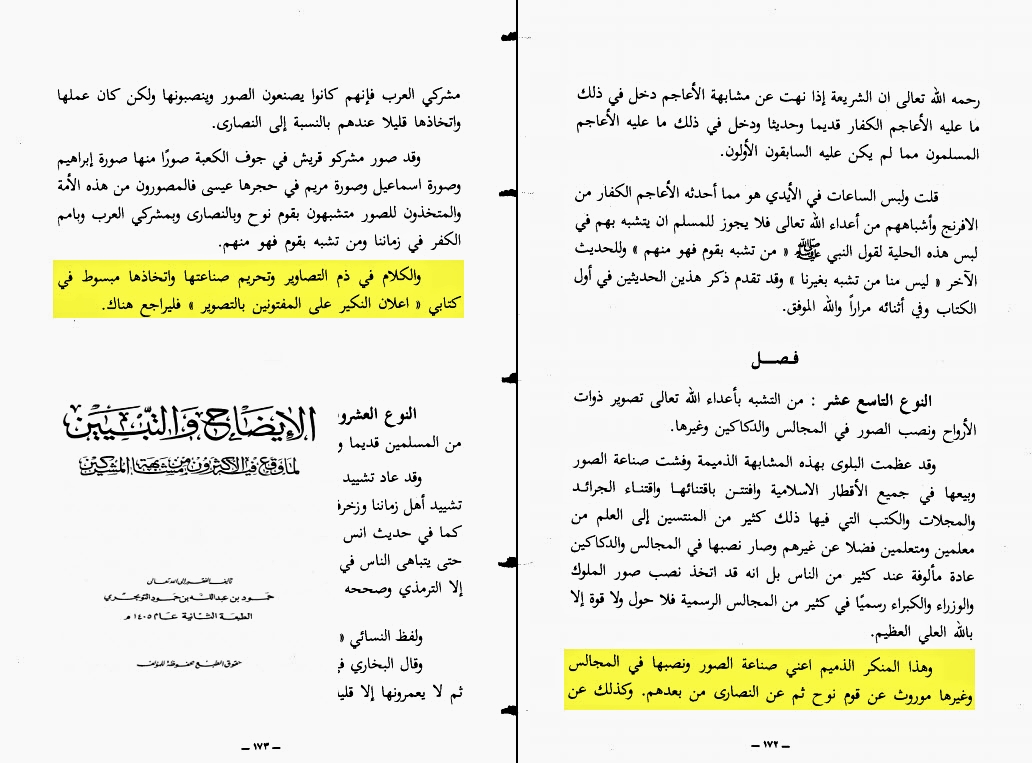 رحمه الله تعالى ان الشريعة إذا نهت عن مشابهة الأعاجم دخل في ذلك
ما عليه الأعاجم الكفار قديما وحديثا ودخل في ذلك ما عليه الأعاجم
المسلمون مما لم يكن عليه السابقون الأولون.
قلت ولبس الساعات في الأيدي هو مما أحدثه الأعاجم الكفار من
الافرنج وأشباههم من أعداء الله تعالى فلا يجوز للمسلم ان يتشبه بهم في
لبس هذه الحلية لقول النبي ﷺ « من تشبه بقوم فهو منهم » وللحديث
الآخر « ليس منا من تشبه بغيرنا » وقد تقدم ذكر هذين الحديثين في أول
الكتاب وفي أثنائه مراراً والله الموفق.
فصل
النوع التاسع عشر : من التشبه بأعداء الله تعالى تصوير ذوات
الأرواح ونصب الصور في المجالس والدكاكين وغيرها.
وقد عظمت البلوى بهذه المشابهة الذميمة وفشت صناعة الصور
وبيعها في جميع الأقطار الاسلامية وافتتن باقتنائها واقتناء الجرائد
والمجلات والكتب التي فيها ذلك كثير من المنتسين إلى العلم من
معلمين ومتعلمين فضلا عن غيرهم وصار نصبها في المجالس والدكاكين
عادة مألوفة عند كثير من الناس بل انه قد اتخذ نصب صور الملوك
والوزراء والكبراء رسميًا في كثير من المجالس الرسمية فلا حول ولا قوة إلا
بالله العلي العظيم.
وهذا المنكر الذميم اعني صناعة الصور ونصبها في المجالس
وغيرها موروث عن قوم نوح ثم عن النصارى من بعدهم. وكذلك عن
– ١٧٢ –
مشركي العرب فإنهم كانوا يصنعون الصور وينصبونها ولكن كان عملها
واتخاذها قليلا عندهم بالنسبة إلى النصارى.
وقد صور مشركو قريش في جوف الكعبة صورًا منها صورة إبراهيم
وصورة اسماعيل وصورة مريم في حجرها عيسى فالمصورون من هذه الأمة
والمتخذون للصور متشبهون بقوم نوح وبالنصارى وبمشركي العرب وبامم
الكفر في زماننا ومن تشبه بقوم فهو منهم.
والكلام في ذم التصاوير وتحريم صناعتها واتخاذها مبسوط في
كتابي « اعلان النكير على المفتونين بالتصوير » فليراجع هناك.
النوع العشرو
من المسلمين قديما و
وقد عاد تشييد
تشييد أهل زماننا وزخرف
كما في حديث انس
حتى يتباهى الناس في
إلا الترمذي وصححه
ولفظ النسائي «
وقال البخاري في
ثم لا يعمرونها إلا قليلا
الإيضاح والتبيين
لما وقع فيه الأكثرون من مشابهة المشركين
تأليف الفقير إلى الله تعالى
حمود بن عبدالله بن حمود التويجري
الطبعة الثانية عام ١٤٠٥ م
حقوق الطبع محفوظة للمؤلف
– ١٧٣ –